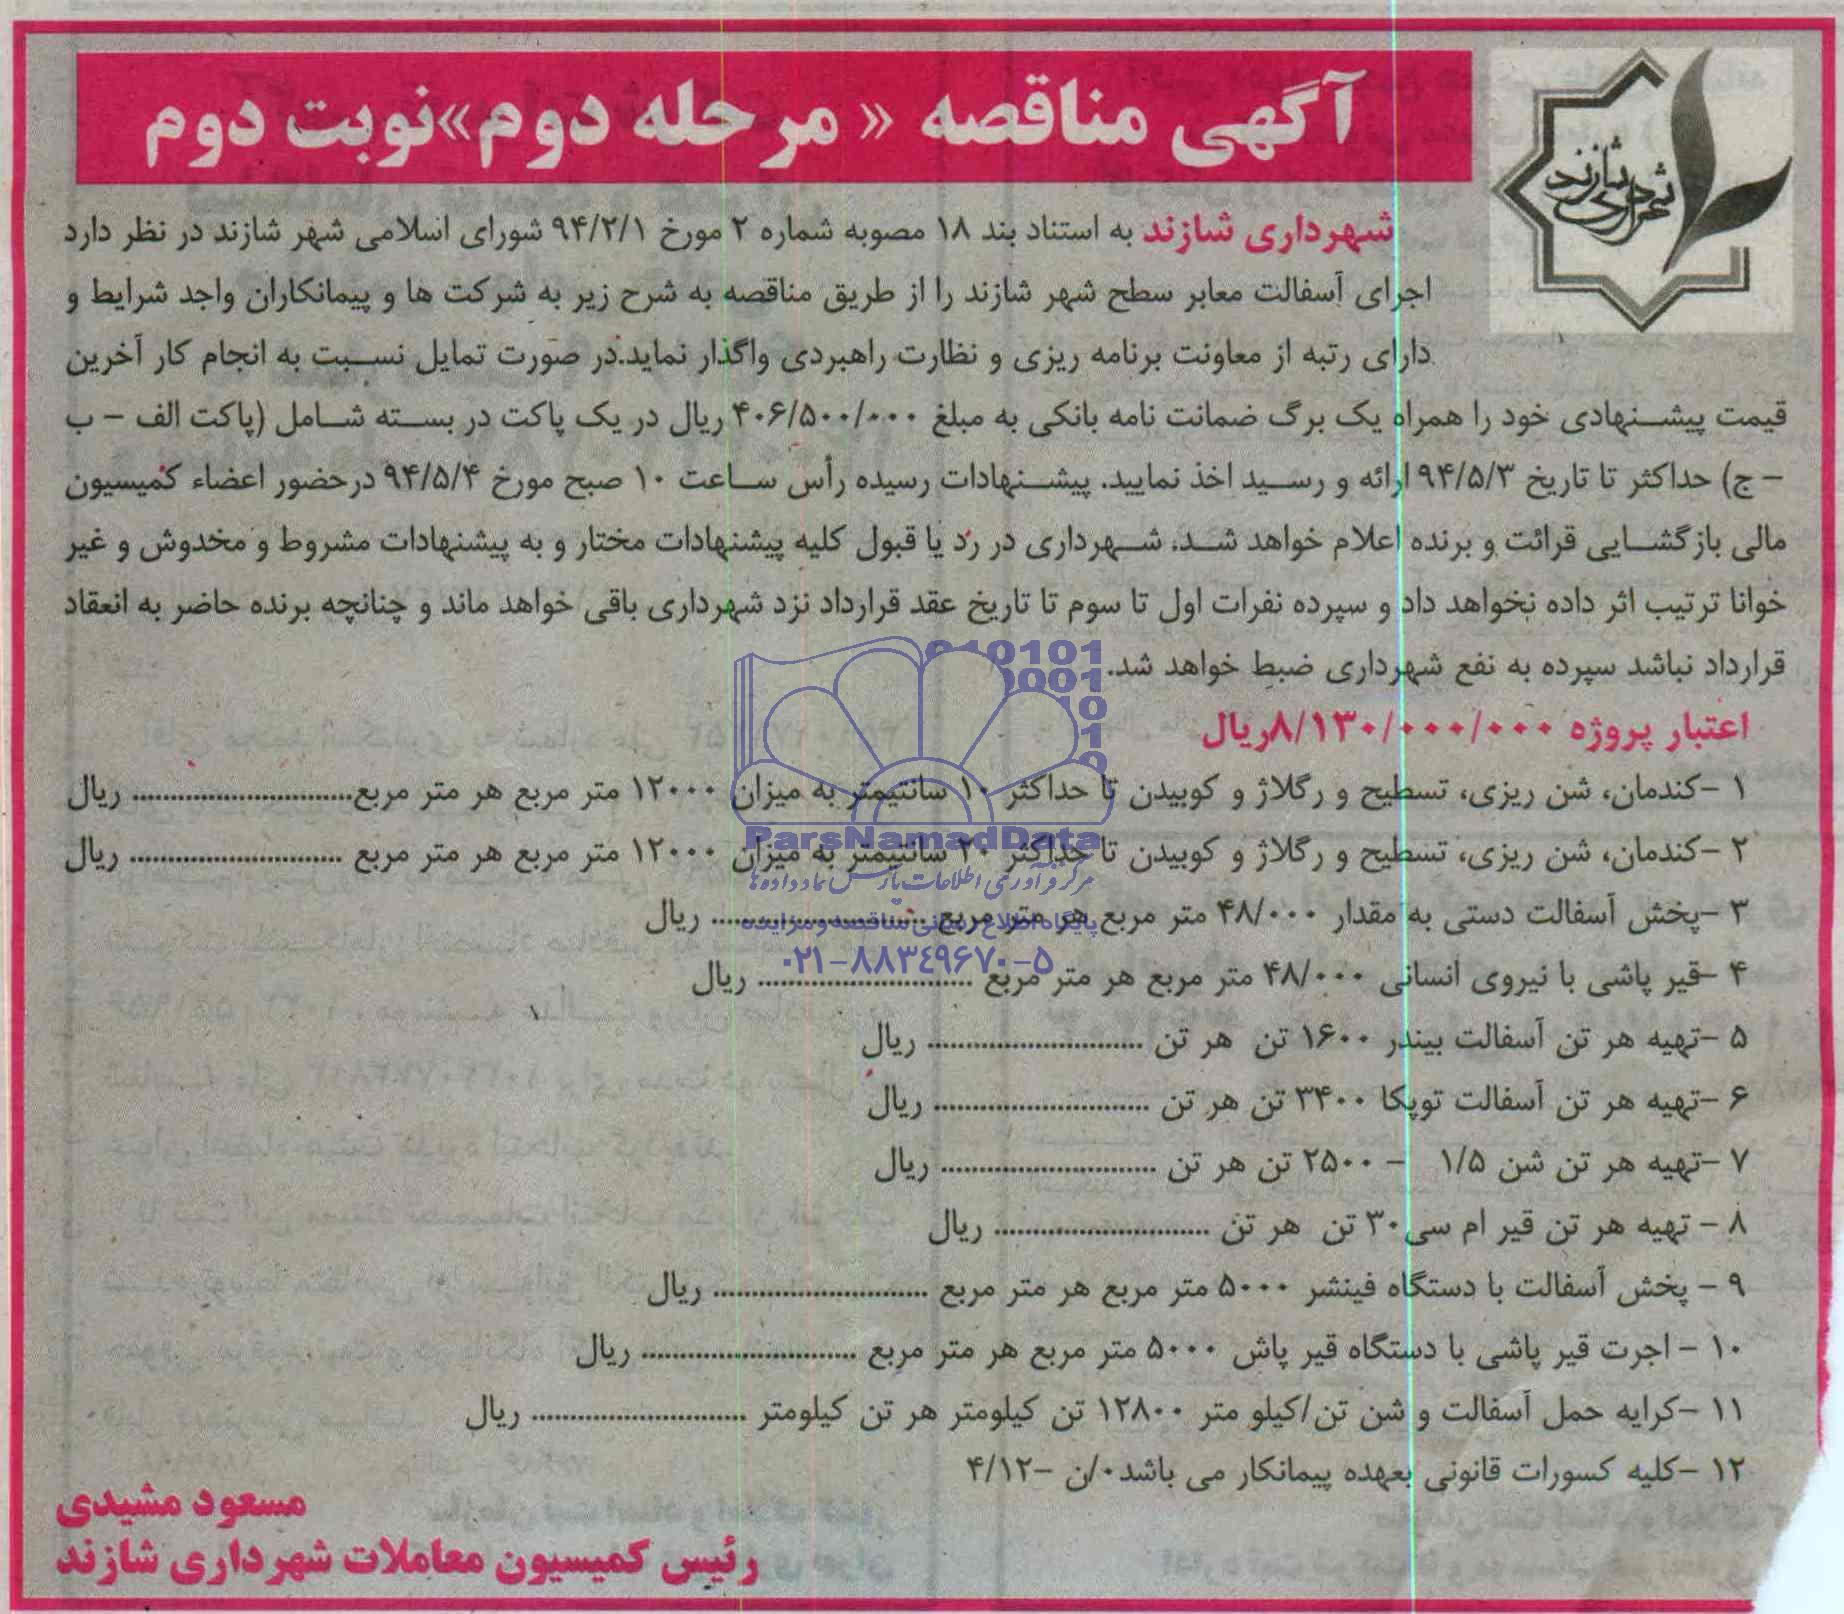 آگهی مناقصه « مرحله دوم»نوبت دوم
شهرداری شازند
شهرداری شازند به استناد بند ۱۸ مصوبه شماره ۲ مورخ ۹۴/۲/۱ شورای اسلامی شهر شازند در نظر دارد
اجرای آسفالت معابر سطح شهر شازند را از طریق مناقصه به شرح زیر به شرکت ها و پیمانکاران واجد شرایط و
دارای رتبه از معاونت برنامه ریزی و نظارت راهبردی واگذار نماید.در صورت تمایل نسبت به انجام کار آخرین
قیمت پیشنهادی خود را همراه یک برگ ضمانت نامه بانکی به مبلغ ۴۰۶/۵۰۰/۰۰۰ ریال در یک پاکت در بسته شامل (پاکت الف – ب
– ج) حداکثر تا تاریخ ۹۴/۵/۳ ارائه و رسید اخذ نمایید. پیشنهادات رسیده رأس ساعت ۱۰ صبح مورخ ۹۴/۵/۴ درحضور اعضاء کمیسیون
مالی بازگشایی قرائت و برنده اعلام خواهد شد. شهرداری در رد یا قبول کلیه پیشنهادات مختار و به پیشنهادات مشروط و مخدوش و غیر
خوانا ترتیب اثر داده نخواهد داد و سپرده نفرات اول تا سوم تا تاریخ عقد قرارداد نزد شهرداری باقی خواهد ماند و چنانچه برنده حاضر به انعقاد
قرارداد نباشد سپرده به نفع شهرداری ضبط خواهد شد.
اعتبار پروژه ۸/۱۳۰/۰۰۰/۰۰۰ریال
۱ –کندمان، شن ریزی، تسطیح و رگلاژ و کوبیدن تا حداکثر ۱۰ سانتیمتر به میزان ۱۲۰۰۰ متر مربع هر متر مربع............................ ریال
۲ –کندمان، شن ریزی، تسطیح و رگلاژ و کوبیدن تا حداکثر ۲۰ سانتیمتر به میزان ۱۲۰۰۰ متر مربع هر متر مربع ............................ ریال
۳ –پخش آسفالت دستی به مقدار ۴۸/۰۰۰ متر مربع هر متر مربع ............................ ریال
۴ –قیر پاشی با نیروی انسانی ۴۸/۰۰۰ متر مربع هر متر مربع ............................ ریال
۵ –تهیه هر تن آسفالت بیندر ۱۶۰۰ تن هر تن ............................ ریال
۶ –تهیه هر تن آسفالت توپکا ۳۴۰۰ تن هر تن ............................ ریال
۷ –تهیه هر تن شن ۱/۵ – ۲۵۰۰ تن هر تن ............................ ریال
۸ – تهیه هر تن قیر ام سی۳۰ تن هر تن ............................ ریال
۹ – پخش آسفالت با دستگاه فینشر ۵۰۰۰ متر مربع هر متر مربع ............................ ریال
۱۰ – اجرت قیر پاشی با دستگاه قیر پاش ۵۰۰۰ متر مربع هر متر مربع ............................ ریال
۱۱ –کرایه حمل آسفالت و شن تن/کیلو متر ۱۲۸۰۰ تن کیلومتر هر تن کیلومتر ............................ ریال
۱۲ –کلیه کسورات قانونی بعهده پیمانکار می باشد۰/ن –۴/۱۲
مسعود مشیدی
رئیس کمیسیون معاملات شهرداری شازند
ParsNamadData
مرکز فرآوری اطلاعات پارس نماد داده‌ها
پایگاه اطلاع رسانی مناقصه و مزایده
۰۲۱–۸۸۳۴۹۶۷۰–۵